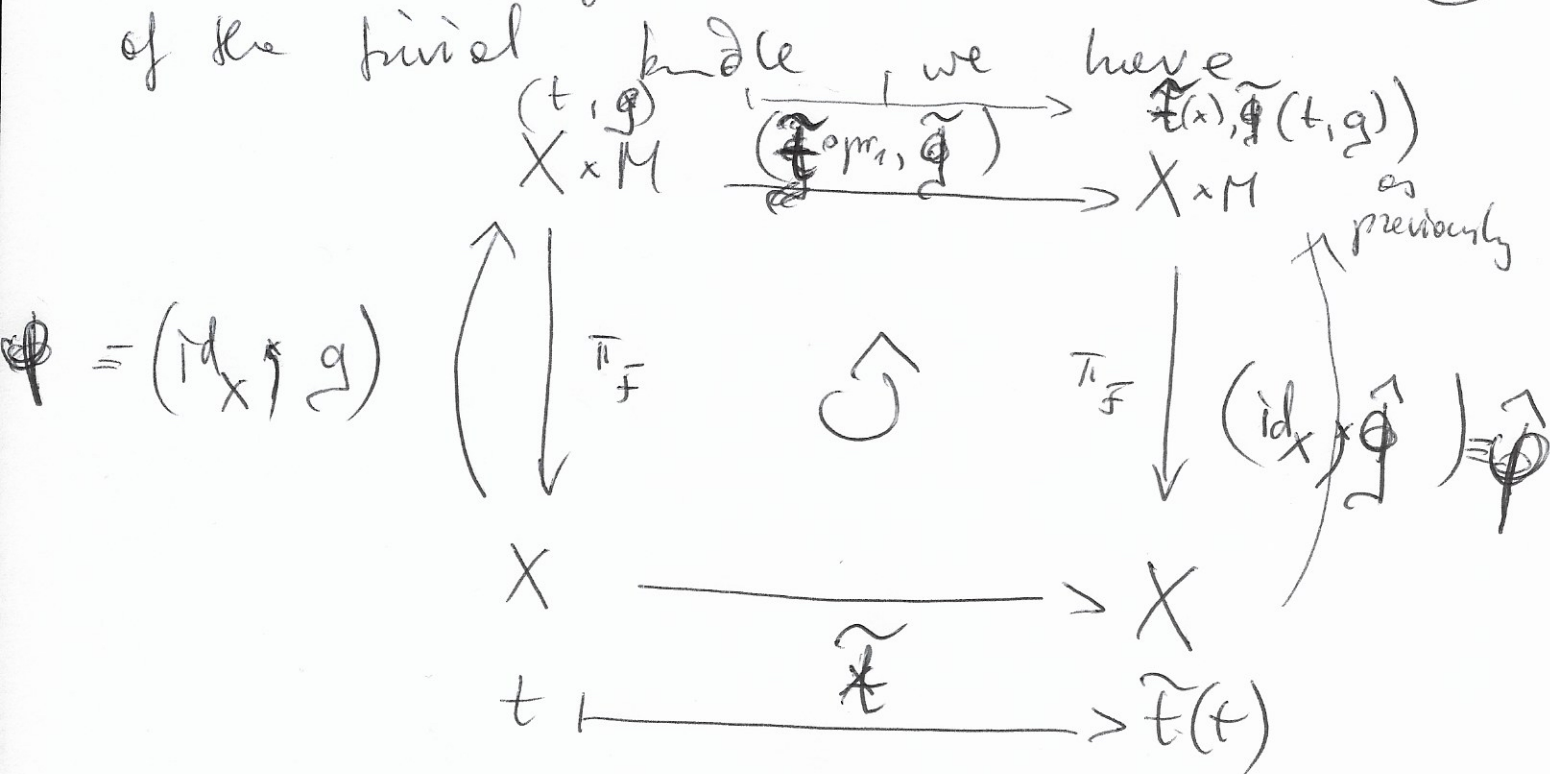 of the trivial bundle, we have
(t, g) ⟼ t̃(x), g̃(t, g))
X × M (t̃ ∘ pr₁, g̃) X × M as
previously
φ = (id_X, g) π_F π_F (id_X, ĝ) = φ̂
X ⟶ X
t̃
t ⟼ t̃(t)